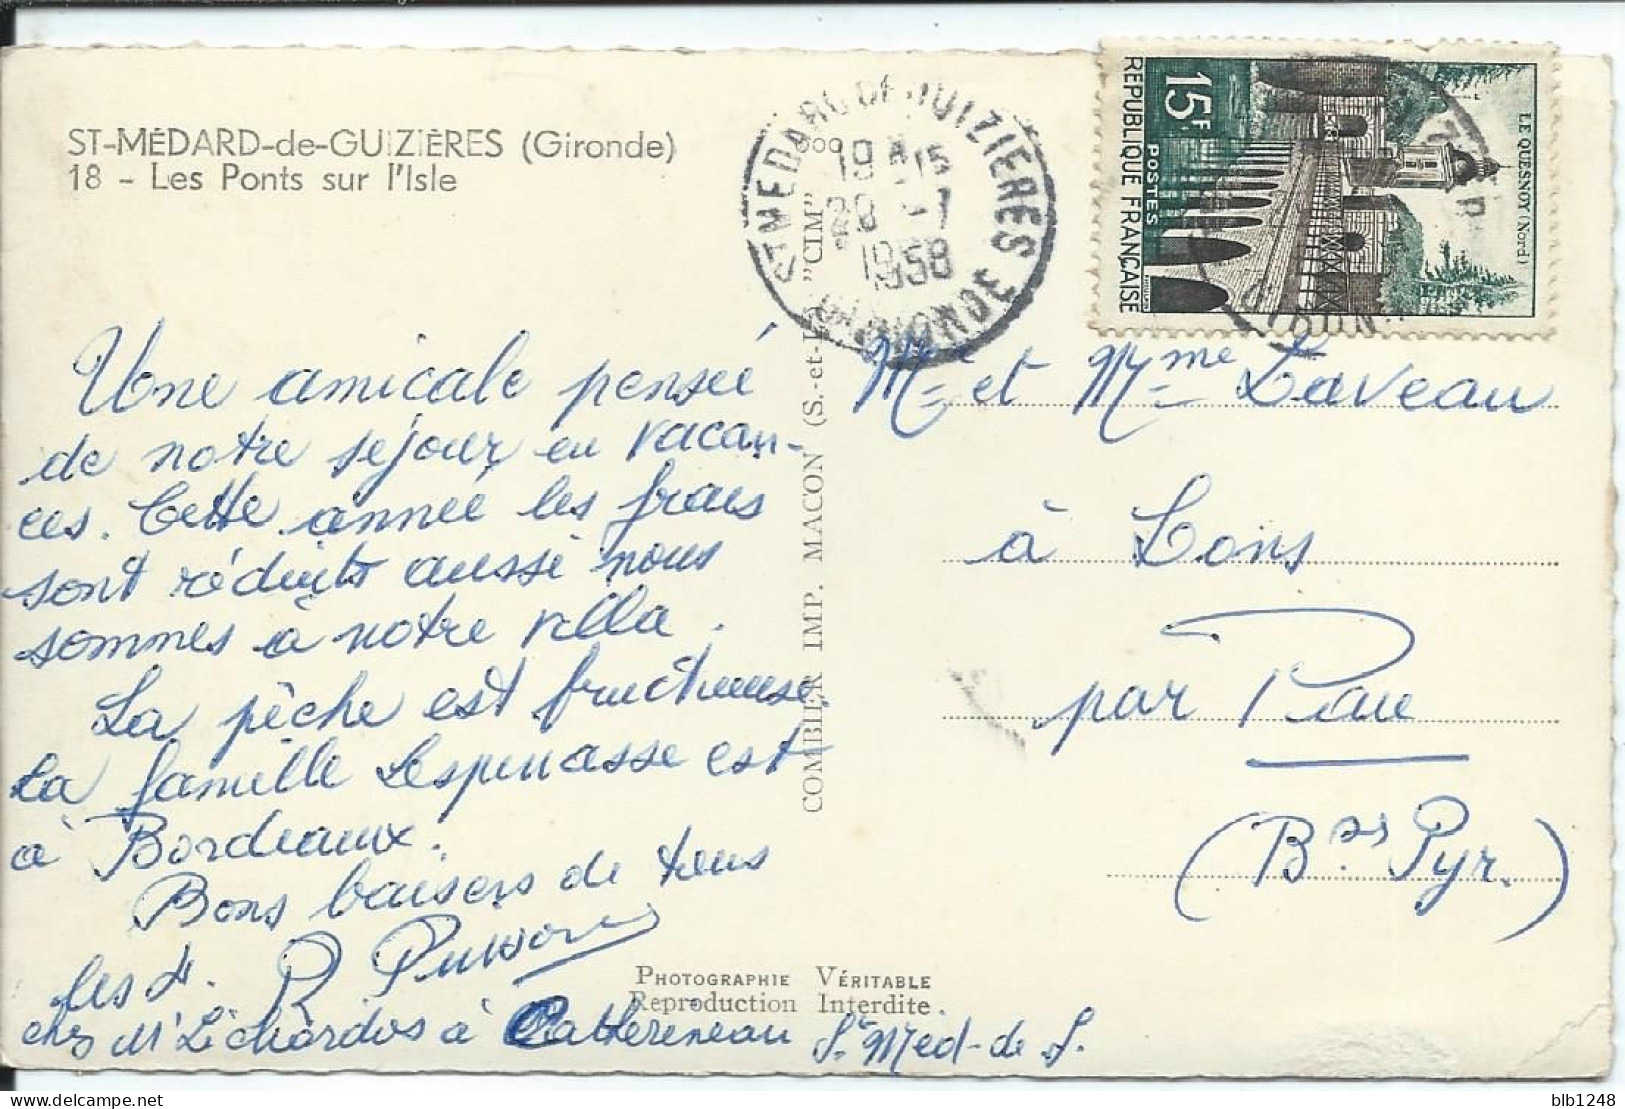 ST-MÉDARD-de-GUIZIÈRES (Gironde)
18 - Les Ponts sur l'Isle
Une amicale pensée
de notre séjour en vacan-
ces. Cette année les frais
sont réduits aussi nous
sommes à notre villa.
La pêche est fructueuse.
La famille Lespinasse est
à Bordeaux.
Bons baisers de tous
les 4.
chez Mr
à
St Med-de G.
COMBIER IMP. MACON (S.-et-L.) "CIM"
PHOTOGRAPHIE VÉRITABLE
Reproduction Interdite.
ST MEDARD DE GUIZIERES
19 H 15
28 - 7
1958
GIRONDE
15F
POSTES
REPUBLIQUE FRANÇAISE
LE QUESNOY (Nord)
Mr et Mme Laveau
à Lons
par Pau
(Bses Pyr.)
blb1248